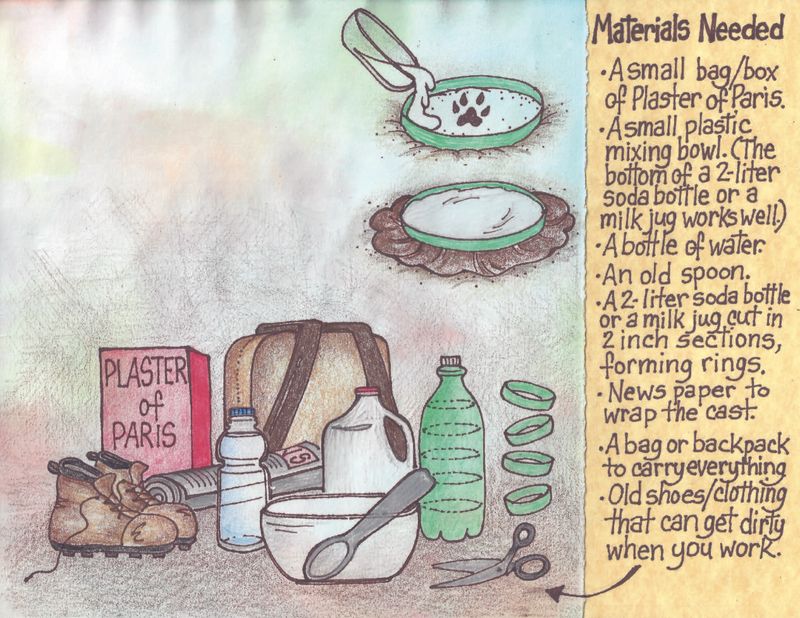 Materials Needed
• A small bag/box
of Plaster of Paris.
• A small plastic
mixing bowl. (The
bottom of a 2-liter
soda bottle or a
milk jug works well.)
• A bottle of water
• An old spoon.
• A 2-liter soda bottle
or a milk jug cut in
2 inch sections,
forming rings.
• News paper to
wrap the cast.
• A bag or backpack
to carry everything
• Old shoes/clothing
that can get dirty
when you work.
PLASTER
of
PARIS